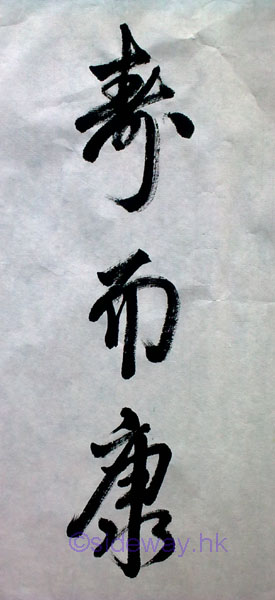 寿而康
©sideway.hk